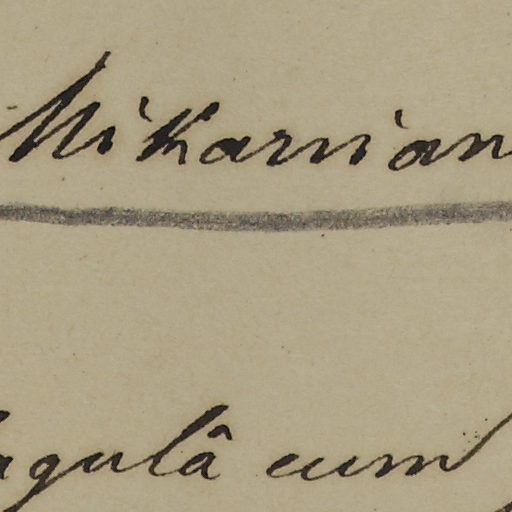 Mikanian
agulâ cum